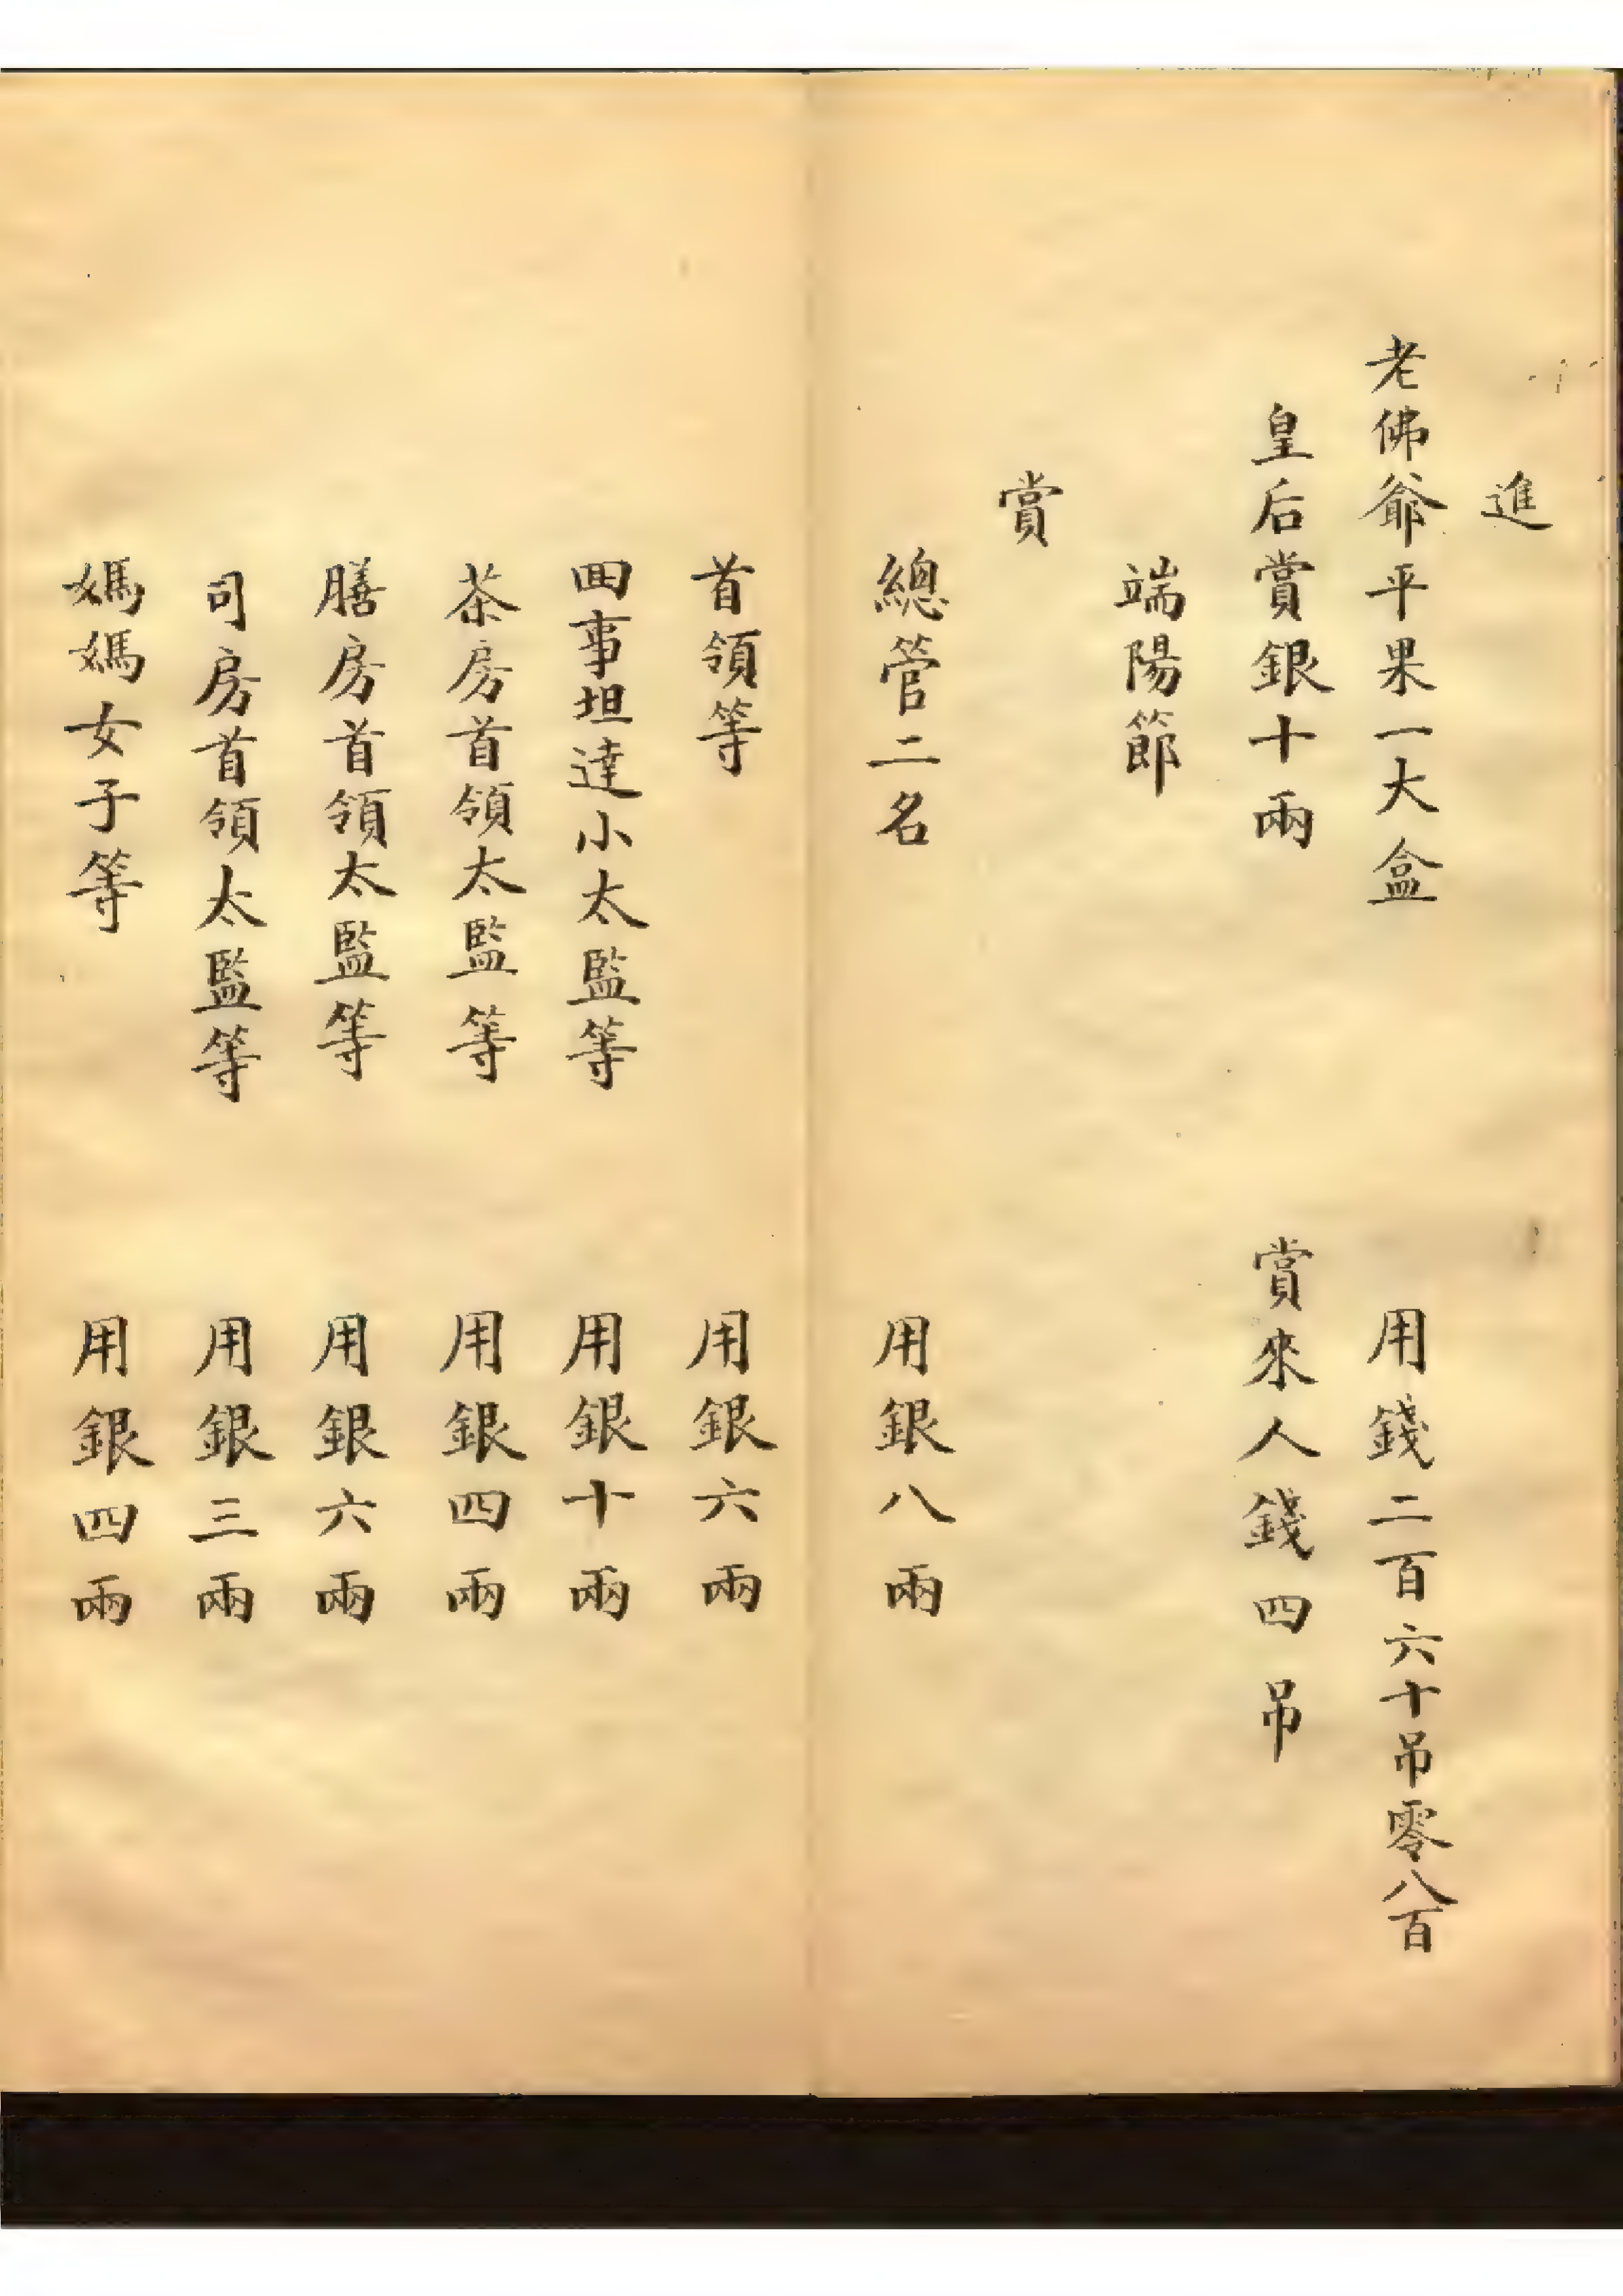 進
老佛爺平果一大盒　用錢二百六十吊零八百
皇后賞銀十兩　賞來人錢四吊
端陽節
賞
總管二名　用銀八兩
首領等　用銀六兩
回事坦達小太監等　用銀十兩
茶房首領太監等　用銀四兩
膳房首領太監等　用銀六兩
司房首領太監等　用銀三兩
媽媽女子等　用銀四兩